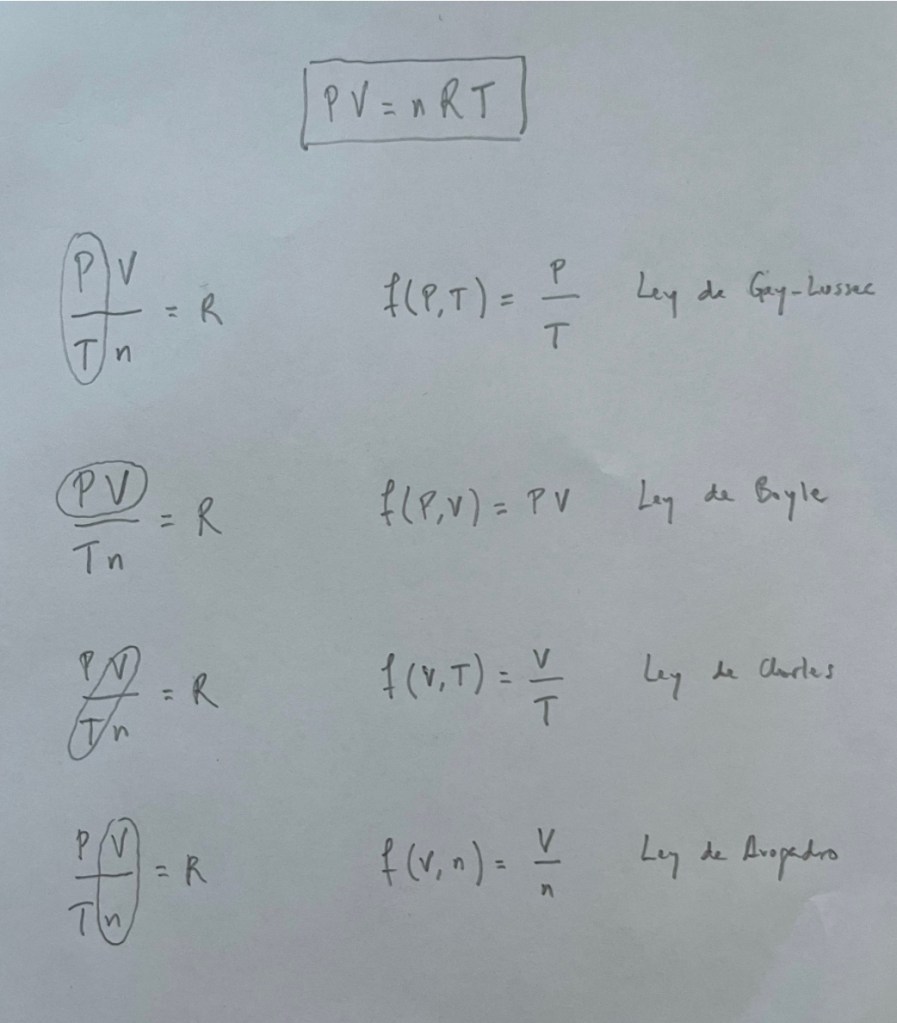 PV = nRT
PV/Tn = R f(P,T) = P/T Ley de Gay-Lussac
PV/Tn = R f(P,V) = PV Ley de Boyle
PV/Tn = R f(V,T) = V/T Ley de Charles
PV/Tn = R f(V,n) = V/n Ley de Avogadro